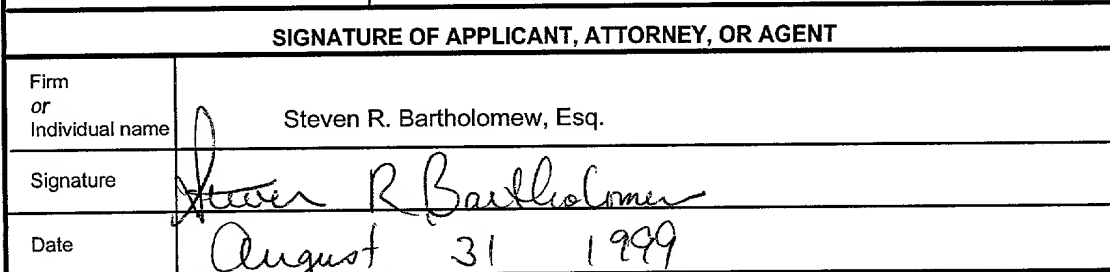 SIGNATURE OF APPLICANT, ATTORNEY, OR AGENT
Firm
or
Individual name
Steven R. Bartholomew, Esq.
Signature
Steven R Bartholomew
Date
August 31 1999